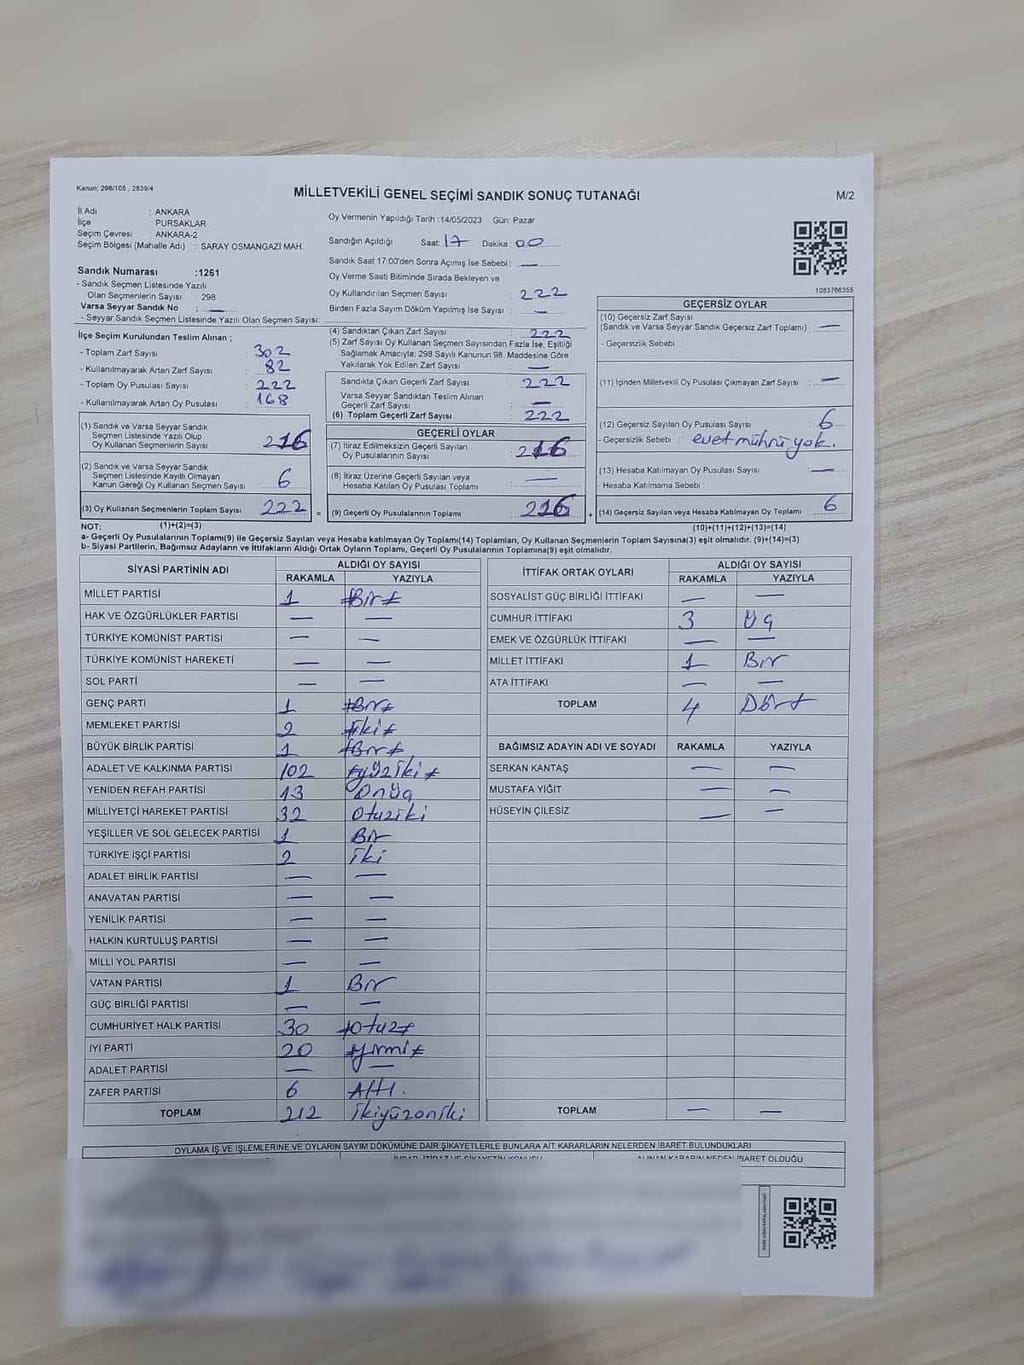 Kanun; 298/105 , 2839/4
MİLLETVEKİLİ GENEL SEÇİMİ SANDIK SONUÇ TUTANAĞI
M/2
İl Adı : ANKARA
İlçe : PURSAKLAR
Seçim Çevresi : ANKARA-2
Seçim Bölgesi (Mahalle Adı) : SARAY OSMANGAZİ MAH.
Oy Vermenin Yapıldığı Tarih :14/05/2023 Gün: Pazar
Sandığın Açıldığı Saat: 17 Dakika : 00
Sandık Saat 17:00'den Sonra Açımış İse Sebebi : —
Oy Verme Saati Bitiminde Sırada Bekleyen ve
Oy Kullandırılan Seçmen Sayısı : 222
Birden Fazla Sayım Döküm Yapılmış İse Sayısı : —
1083766355
Sandık Numarası :1261
- Sandık Seçmen Listesinde Yazılı
Olan Seçmenlerin Sayısı : 298
Varsa Seyyar Sandık No : —
- Seyyar Sandık Seçmen Listesinde Yazılı Olan Seçmen Sayısı:
İlçe Seçim Kurulundan Teslim Alınan ;
- Toplam Zarf Sayısı : 302
- Kullanılmayarak Artan Zarf Sayısı : 82
- Toplam Oy Pusulası Sayısı : 222
- Kullanılmayarak Artan Oy Pusulası : 168
(1) Sandık ve Varsa Seyyar Sandık
Seçmen Listesinde Yazılı Olup
Oy Kullanan Seçmenlerin Sayısı 216
(2) Sandık ve Varsa Seyyar Sandık
Seçmen Listesinde Kayıtlı Olmayan
Kanun Gereği Oy Kullanan Seçmen Sayısı 6
(3) Oy Kullanan Seçmenlerin Toplam Sayısı 222
(4) Sandıktan Çıkan Zarf Sayısı : 222
(5) Zarf Sayısı Oy Kullanan Seçmen Sayısından Fazla İse, Eşitliği
Sağlamak Amacıyla; 298 Sayılı Kanunun 98. Maddesine Göre
Yakılarak Yok Edilen Zarf Sayısı : —
Sandıkta Çıkan Geçerli Zarf Sayısı : 222
Varsa Seyyar Sandıktan Teslim Alınan
Geçerli Zarf Sayısı : —
(6) Toplam Geçerli Zarf Sayısı : 222
GEÇERLİ OYLAR
(7) İtiraz Edilmeksizin Geçerli Sayılan
Oy Pusulalarının Sayısı : 216
(8) İtiraz Üzerine Geçerli Sayılan veya
Hesaba Katılan Oy Pusulası Toplamı : —
= (9) Geçerli Oy Pusulalarının Toplamı : 216 +
GEÇERSİZ OYLAR
(10) Geçersiz Zarf Sayısı
(Sandık ve Varsa Seyyar Sandık Geçersiz Zarf Toplamı) : —
- Geçersizlik Sebebi :
(11) İçinden Milletvekili Oy Pusulası Çıkmayan Zarf Sayısı : —
(12) Geçersiz Sayılan Oy Pusulası Sayısı : 6
- Geçersizlik Sebebi : evet mührü yok.
(13) Hesaba Katılmayan Oy Pusulası Sayısı : —
Hesaba Katılmama Sebebi :
(14) Geçersiz Sayılan veya Hesaba Katılmayan Oy Toplamı : 6
NOT: (1)+(2)=(3) (10)+(11)+(12)+(13)=(14)
a- Geçerli Oy Pusulalarının Toplamı(9) ile Geçersiz Sayılan veya Hesaba Katılmayan Oy Toplamı(14) Toplamları, Oy Kullanan Seçmenlerin Toplam Sayısına(3) eşit olmalıdır. (9)+(14)=(3)
b- Siyasi Partilerin, Bağımsız Adayların ve İttifakların Aldığı Ortak Oyların Toplamı, Geçerli Oy Pusulalarının Toplamına(9) eşit olmalıdır.
SİYASİ PARTİNİN ADI ALDIĞI OY SAYISI
RAKAMLA YAZIYLA
MİLLET PARTİSİ 1 #Bir#
HAK VE ÖZGÜRLÜKLER PARTİSİ — —
TÜRKİYE KOMÜNİST PARTİSİ — —
TÜRKİYE KOMÜNİST HAREKETİ — —
SOL PARTİ — —
GENÇ PARTİ 1 #Bir#
MEMLEKET PARTİSİ 2 #iki#
BÜYÜK BİRLİK PARTİSİ 1 #Bir#
ADALET VE KALKINMA PARTİSİ 102 #yüziki#
YENİDEN REFAH PARTİSİ 13 onüç
MİLLİYETÇİ HAREKET PARTİSİ 32 otuziki
YEŞİLLER VE SOL GELECEK PARTİSİ 1 Bir
TÜRKİYE İŞÇİ PARTİSİ 2 iki
ADALET BİRLİK PARTİSİ — —
ANAVATAN PARTİSİ — —
YENİLİK PARTİSİ — —
HALKIN KURTULUŞ PARTİSİ — —
MİLLİ YOL PARTİSİ — —
VATAN PARTİSİ 1 Bir
GÜÇ BİRLİĞİ PARTİSİ — —
CUMHURİYET HALK PARTİSİ 30 #otuz#
İYİ PARTİ 20 #yirmi#
ADALET PARTİSİ — —
ZAFER PARTİSİ 6 Altı.
TOPLAM 212 ikiyüzoniki
İTTİFAK ORTAK OYLARI ALDIĞI OY SAYISI
RAKAMLA YAZIYLA
SOSYALİST GÜÇ BİRLİĞİ İTTİFAKI — —
CUMHUR İTTİFAKI 3 Üç
EMEK VE ÖZGÜRLÜK İTTİFAKI — —
MİLLET İTTİFAKI 1 Bir
ATA İTTİFAKI — —
TOPLAM 4 Dört
BAĞIMSIZ ADAYIN ADI VE SOYADI RAKAMLA YAZIYLA
SERKAN KANTAŞ — —
MUSTAFA YİĞİT — —
HÜSEYİN ÇİLESİZ — —
TOPLAM — —
OYLAMA İŞ VE İŞLEMLERİNE VE OYLARIN SAYIM DÖKÜMÜNE DAİR ŞİKAYETLERLE BUNLARA AİT KARARLARIN NELERDEN İBARET BULUNDUKLARI
ALINAN KARARIN NEDEN İBARET OLDUĞU